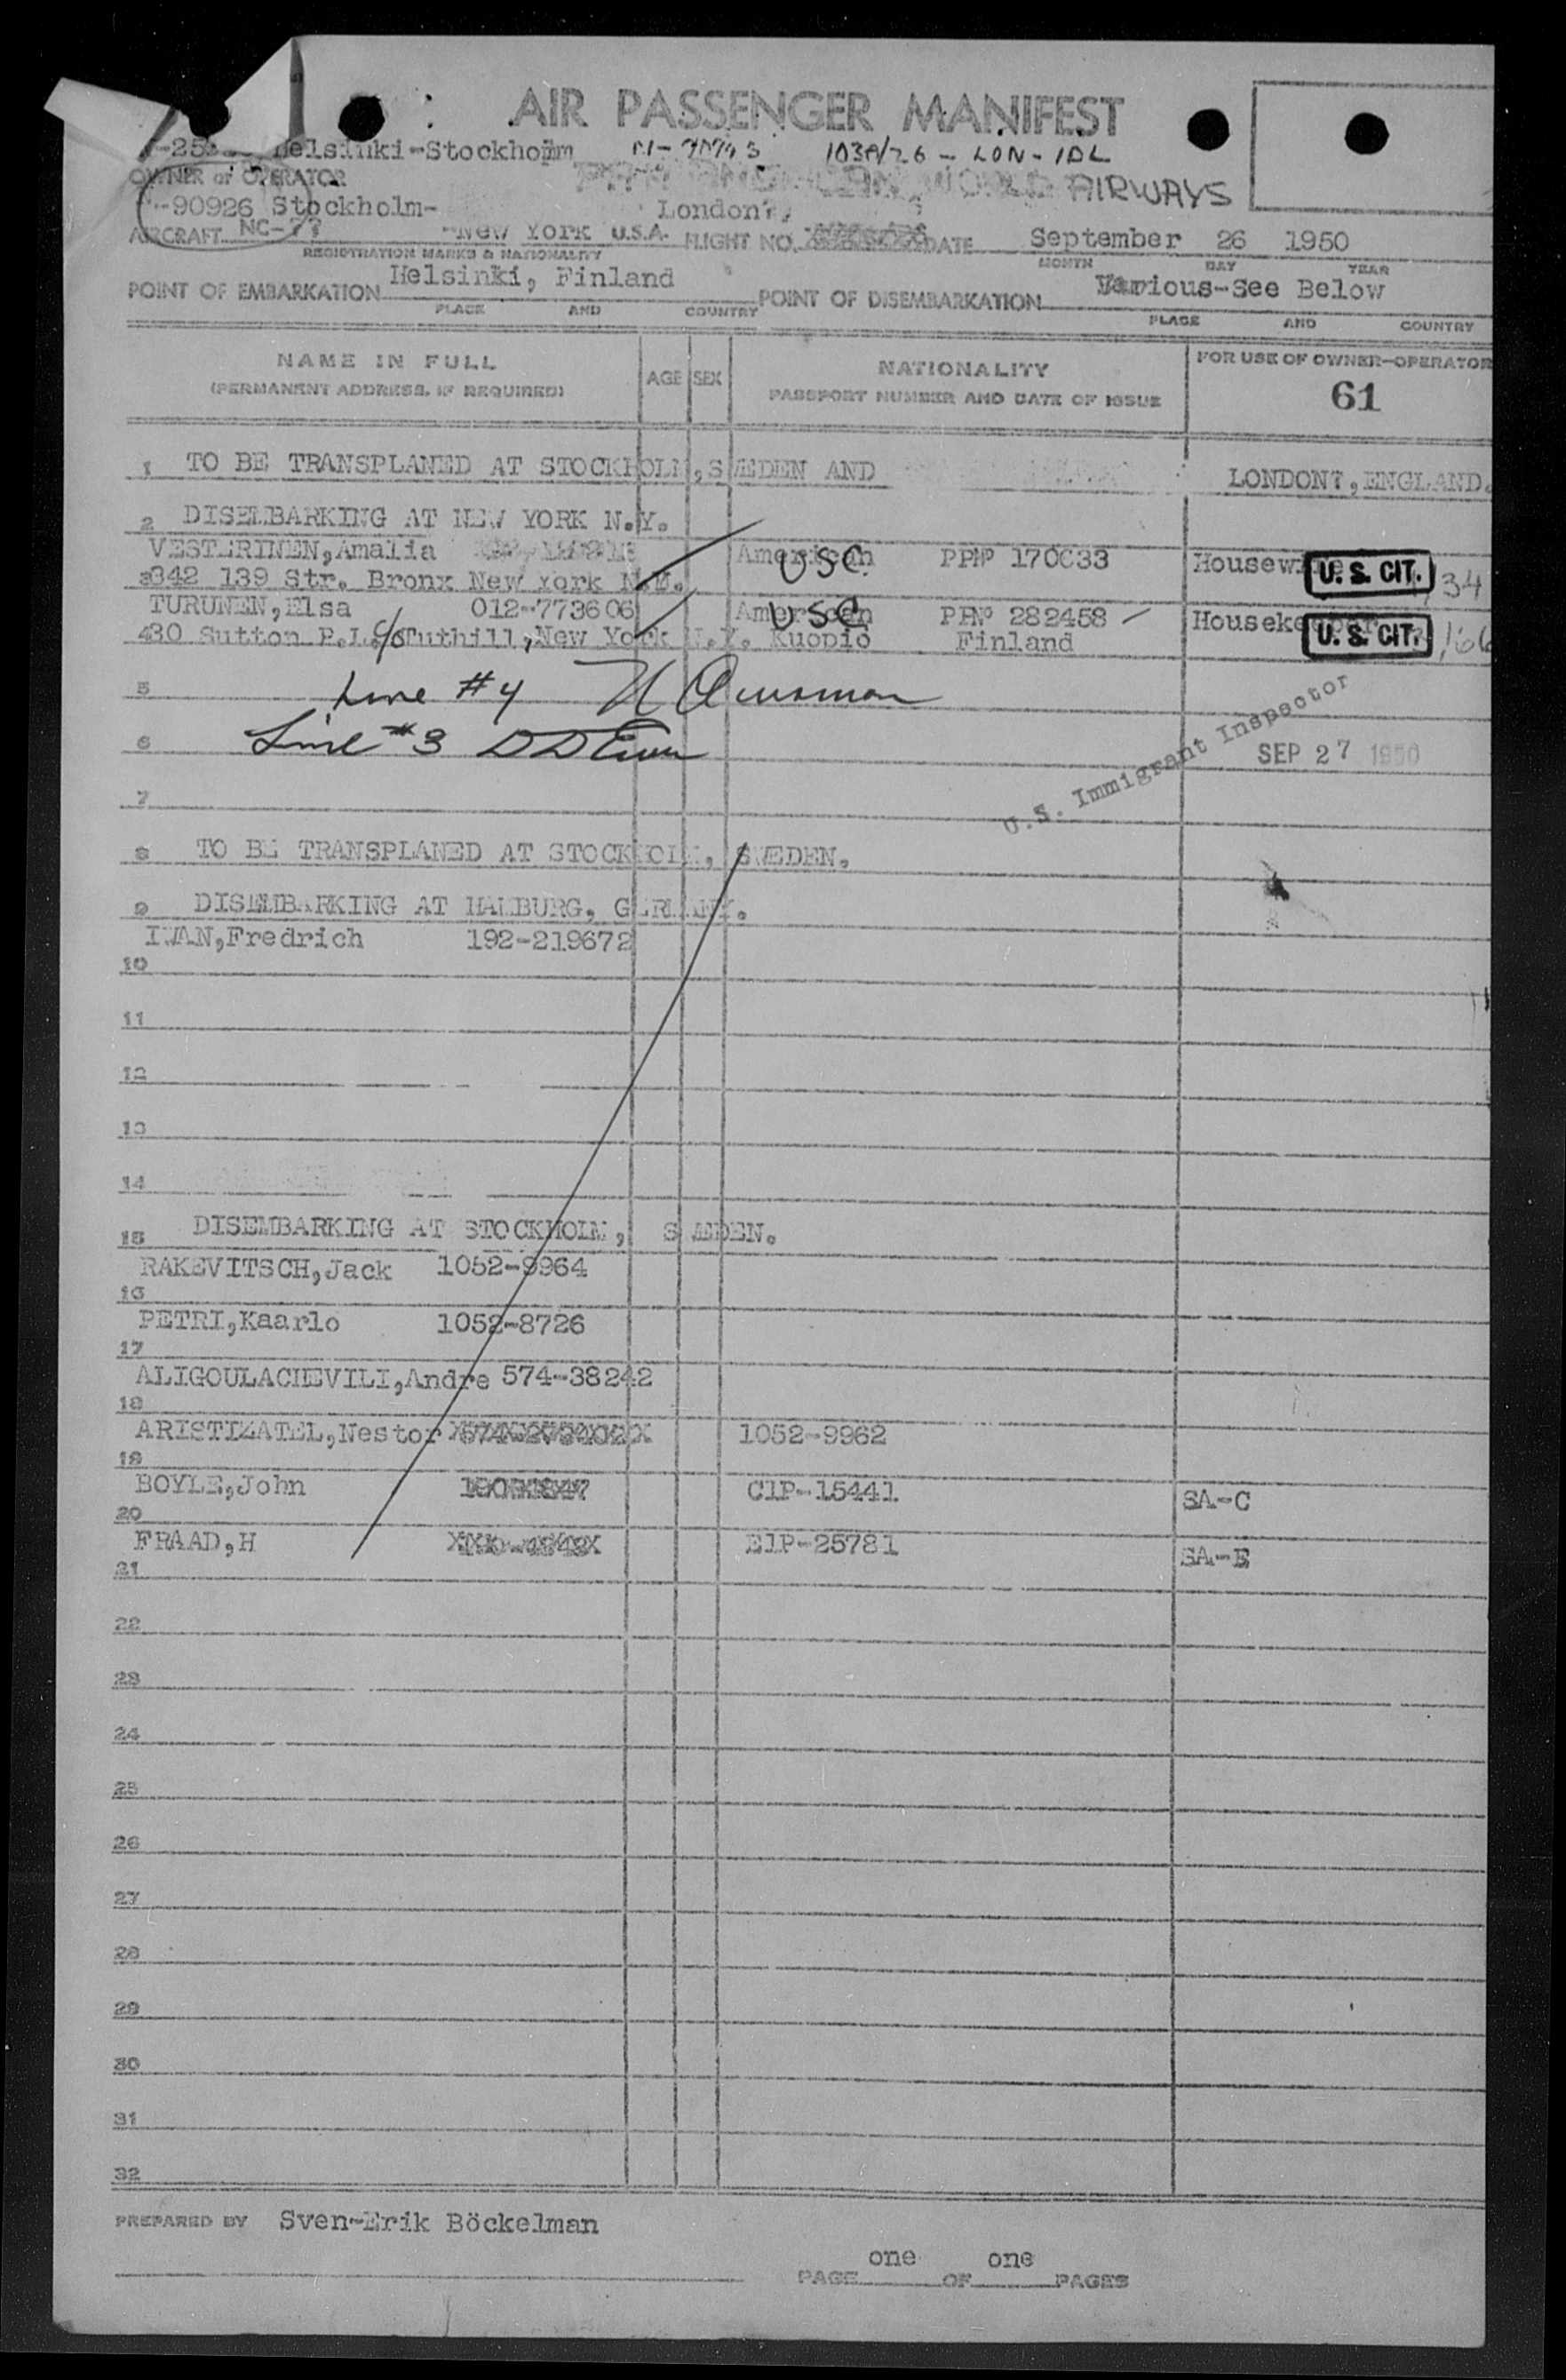 AIR PASSENGER MANIFEST
Helsinki-Stockholm 103A/26 - LON - IDL
OWNER or OPERATOR PAN AMERICAN WORLD AIRWAYS
-90926 Stockholm- London
AIRCRAFT NC- -New York U.S.A. FLIGHT NO. DATE September 26 1950
REGISTRATION MARKS & NATIONALITY MONTH DAY YEAR
POINT OF EMBARKATION Helsinki, Finland POINT OF DISEMBARKATION Various-See Below
PLACE AND COUNTRY PLACE AND COUNTRY
NAME IN FULL AGE SEX NATIONALITY FOR USE OF OWNER-OPERATOR
(PERMANENT ADDRESS, IF REQUIRED) PASSPORT NUMBER AND DATE OF ISSUE 61
1 TO BE TRANSPLANED AT STOCKHOLM, SWEDEN AND LONDON?, ENGLAND.
2 DISEMBARKING AT NEW YORK N.Y.
VESTERINEN, Amalia American USC PPNo 170633 Housewife U. S. CIT. 34
3 342 139 Str. Bronx New York
TURUNEN, Elsa 012-773606 American USC PPNo 282458 Housekeeper U. S. CIT.
4 30 Sutton P.L. c/o Tuthill, New York N.Y. Kuopio Finland
5 Line #4
6 Line #3
U.S. Immigrant Inspector
SEP 27 1950
7
8 TO BE TRANSPLANED AT STOCKHOLM, SWEDEN.
9 DISEMBARKING AT HAMBURG, GERMANY.
IWAN, Fredrich 192-219672
10
11
12
13
14
15 DISEMBARKING AT STOCKHOLM, SWEDEN.
RAKEVITSCH, Jack 1052-9964
16
PETRI, Kaarlo 1052-8726
17
ALIGOULACHEVILI, Andre 574-38242
18
ARISTIZATEL, Nestor 1052-9962
19
BOYLE, John C1P-15441 SA-C
20
FRAAD, H E1P-25781 SA-E
21
22
23
24
25
26
27
28
29
30
31
32
PREPARED BY Sven-Erik Böckelman
PAGE one OF one PAGES